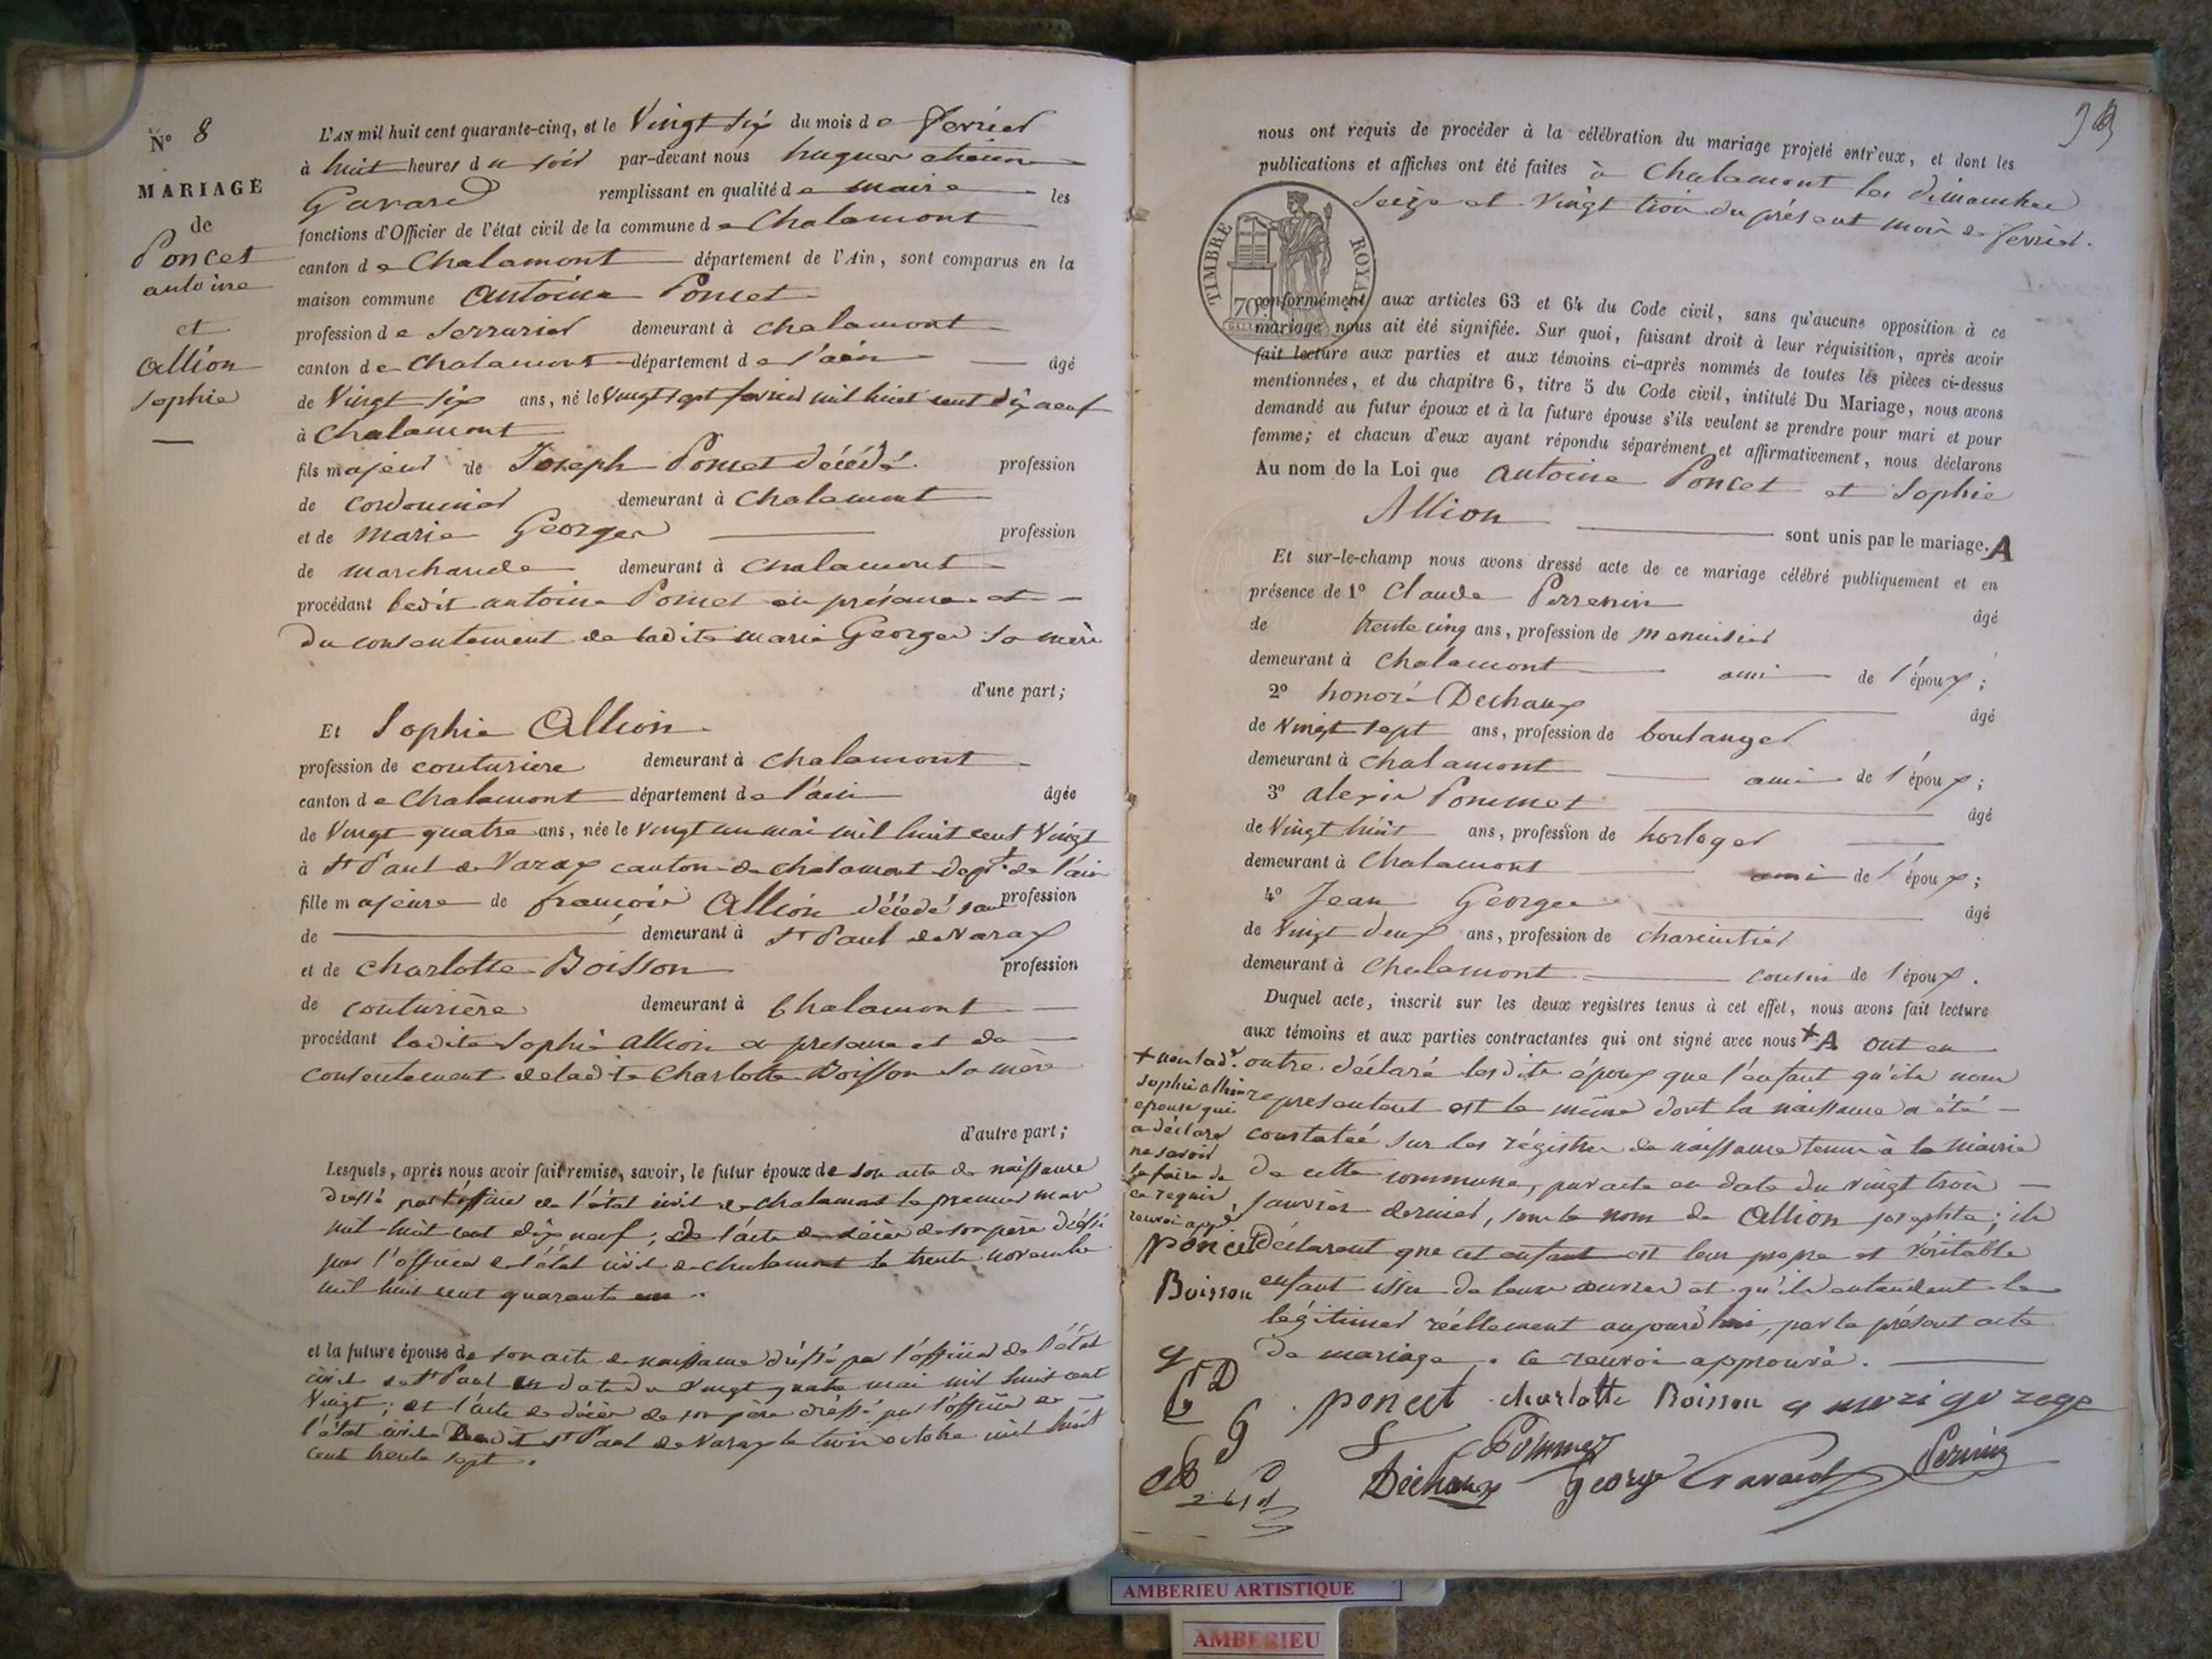 N° 8
MARIAGE
de
Poncet
antoine
et
Allion
sophie
L'AN mil huit cent quarante-cinq, et le Vingt six du mois de fevrier
à huit heures du soir par-devant nous hugues etienne
Gavard remplissant en qualité de maire les
fonctions d'Officier de l'état civil de la commune de Chalamont
canton de Chalamont département de l'Ain, sont comparus en la
maison commune Antoine Poncet
profession de serrurier demeurant à chalamont
canton de Chalamont département de l'ain âgé
de Vingt six ans, né le Vingt sept fevrier mil huit cent dix neuf
à Chalamont
fils majeur de Joseph Poncet décédé profession
de cordonnier demeurant à Chalamont
et de Marie George profession
de marchande demeurant à Chalamont
procédant ledit antoine Poncet en présence et
du consentement de ladite marie George sa mère
d'une part;
Et Sophie Allion
profession de couturiere demeurant à Chalamont
canton de Chalamont département de l'ain âgée
de Vingt quatre ans, née le Vingt un mai mil huit cent Vingt
à St Paul de Varax canton de chalamont dept de l'ain
fille majeure de françois Allion décédé sans profession
de demeurant à St Paul de Varax
et de Charlotte Boisson profession
de couturière demeurant à Chalamont
procédant ladite Sophie Allion en presence et du
consentement de ladite Charlotte Boisson sa mère
d'autre part;
Lesquels, après nous avoir fait remise, savoir, le futur époux de son acte de naissance
dressé par l'officier de l'état civil de chalamont le premier mars
mil huit cent dix neuf; de l'acte de décès de son père dressé
par l'officier de l'état civil de chalamont le trente novembre
mil huit cent quarante un.
et la future épouse de son acte de naissance dréssé par l'officier de l'état
civil de St Paul en date du Vingt quatre mai mil huit cent
Vingt; et l'acte de décès de son père dréssé par l'officier de
l'état civil dudit St Paul de Varax le trois octobre mil huit
cent trente sept.
nous ont requis de procéder à la célébration du mariage projeté entr'eux, et dont les
publications et affiches ont été faites à Chalamont les dimanches
seize et Vingt trois du présent mois de fevrier.
TIMBRE ROYAL
70c
conformément aux articles 63 et 64 du Code civil, sans qu'aucune opposition à ce
mariage nous ait été signifiée. Sur quoi, faisant droit à leur réquisition, après avoir
fait lecture aux parties et aux témoins ci-après nommés de toutes les pièces ci-dessus
mentionnées, et du chapitre 6, titre 5 du Code civil, intitulé Du Mariage, nous avons
demandé au futur époux et à la future épouse s'ils veulent se prendre pour mari et pour
femme; et chacun d'eux ayant répondu séparément et affirmativement, nous déclarons
Au nom de la Loi que antoine Poncet et Sophie
Allion sont unis par le mariage. A
Et sur-le-champ nous avons dressé acte de ce mariage célébré publiquement et en
présence de 1° Claude Perrenin âgé
de trente cinq ans, profession de menuisier
demeurant à Chalamont ami de l'époux;
2° honoré Dechaux âgé
de Vingt sept ans, profession de boulanger
demeurant à Chalamont ami de l'époux;
3° alexis Pommet âgé
de Vingt huit ans, profession de horloger
demeurant à Chalamont ami de l'époux;
4° Jean George âgé
de Vingt deux ans, profession de charcutier
demeurant à Chalamont cousin de l'époux.
Duquel acte, inscrit sur les deux registres tenus à cet effet, nous avons fait lecture
aux témoins et aux parties contractantes qui ont signé avec nous + A ont en
outre déclaré lesdits époux que l'enfant qu'ils nous
representent est le même dont la naissance a été
constatée sur les régistres de naissance tenus à la mairie
de cette commune, par acte en date du vingt trois
janvier dernier, sous le nom de Allion josephte; ils
déclarent que cet enfant est leur propre et véritable
enfant issu de leurs œuvres et qu'ils entendent le
légitimer réellement aujourd'hui, par le présent acte
de mariage. ce renvoi approuvé.
+ non lade
sophie allion
epouse qui
a déclaré
ne savoir
le faire de
ce requis
renvoi appé
poncet
Boisson
poncet charlotte Boisson marigorege
Pommet
Dechaux George Gavard Perrenin
AMBERIEU ARTISTIQUE
AMBERIEU